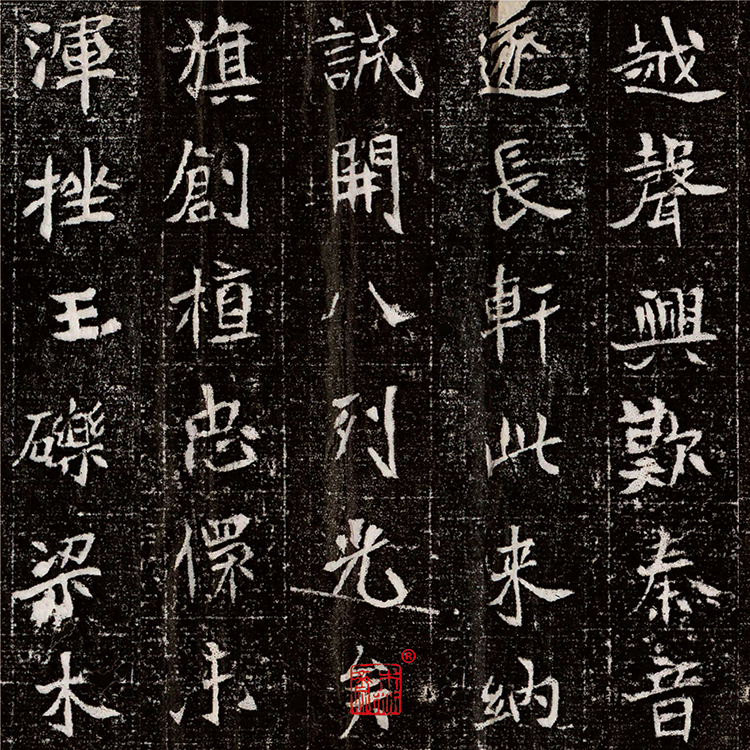 越聲興歎秦音
遂長軒此来納
誠開八列光
旗創植忠
渾挫王礫梁木